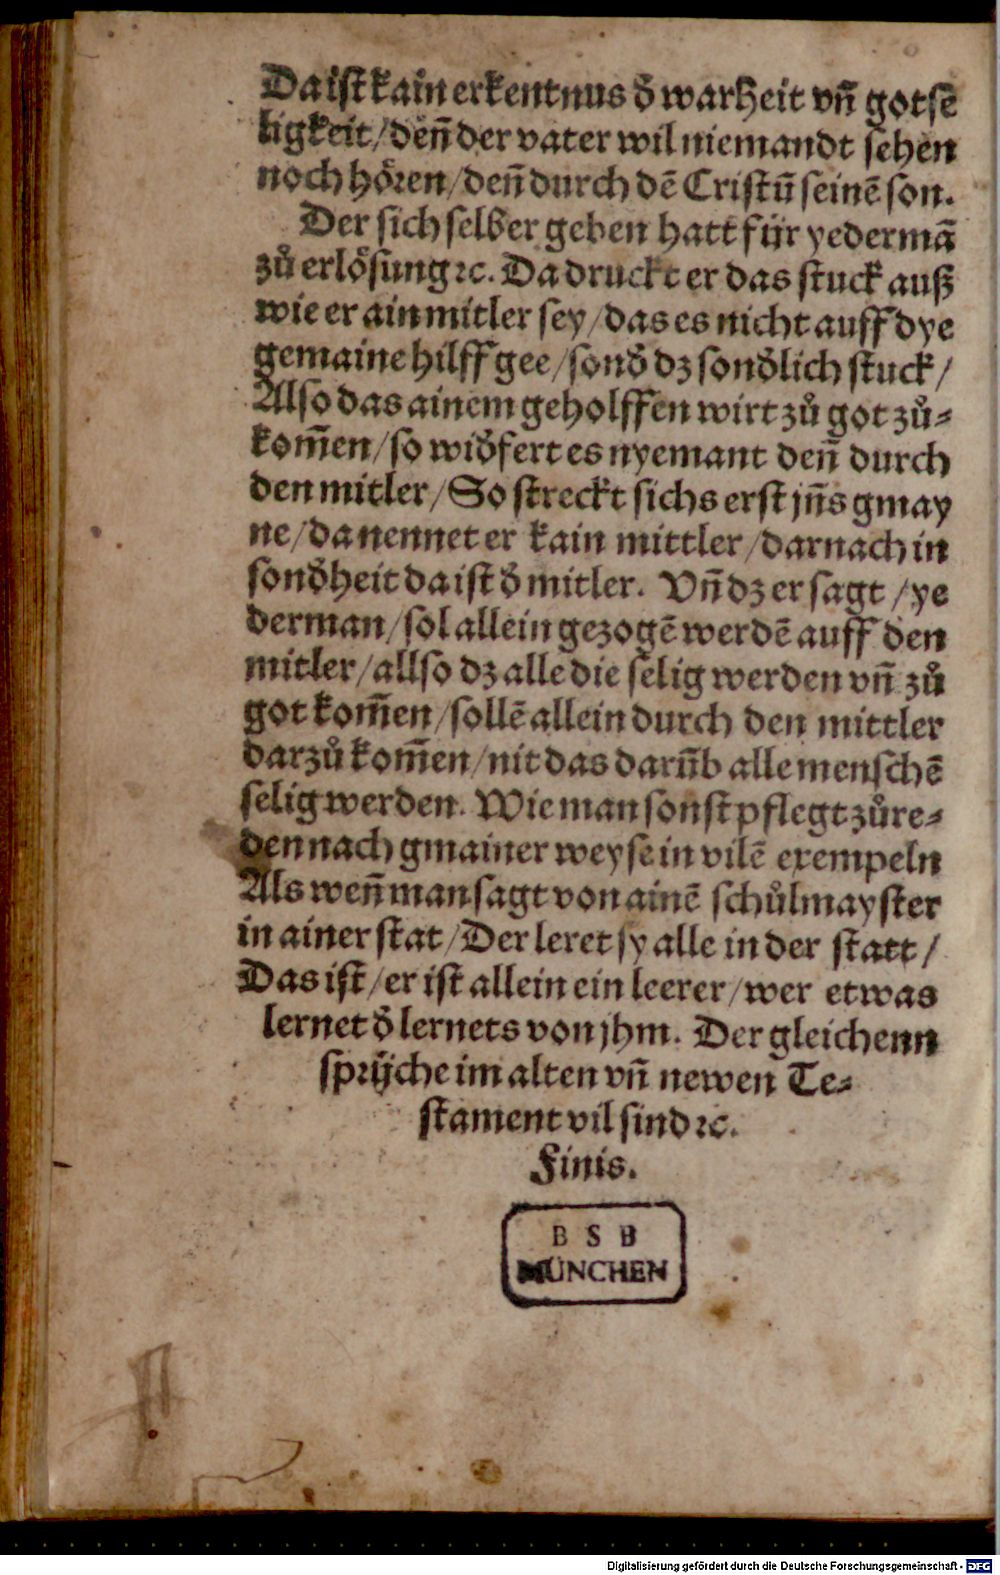 Da ist kain erkentnus ð warheit vñ gotse
ligkeit / deñ der vater wil niemandt sehen
noch hören / deñ durch dē Cristū seinē son.
Der sich selber geben hatt für yedermā
zů erlösung ꝛc. Da druckt er das stuck auß
wie er ain mitler sey / das es nicht auff dye
gemaine hilff gee / sonð dz sonðlich stuck /
Also das ainem geholffen wirt zů got zů⸗
kom̄en / so wiðfert es nyemant deñ durch
den mitler / So streckt sichs erst jñs gmay
ne / da nennet er kain mittler / darnach in
sonðheit da ist ð mitler. Vñ dz er sagt / ye
derman / sol allein gezogē werdē auff den
mitler / allso dz alle die selig werden vñ zů
got kom̄en / sollē allein durch den mittler
darzů kom̄en / nit das darūb alle menschē
selig werden. Wie man sonst pflegt zů re⸗
den nach gmainer weyse in vilē exempeln
Als weñ man sagt von ainē schůlmayster
in ainer stat / Der leret sy alle in der statt /
Das ist / er ist allein ein leerer / wer etwas
lernet ð lernets von jhm. Der gleichenn
sprüche im alten vñ newen Te⸗
stament vil sind ꝛc.
Finis.
B S B
MÜNCHEN
Digitalisierung gefördert durch die Deutsche Forschungsgemeinschaft - DFG